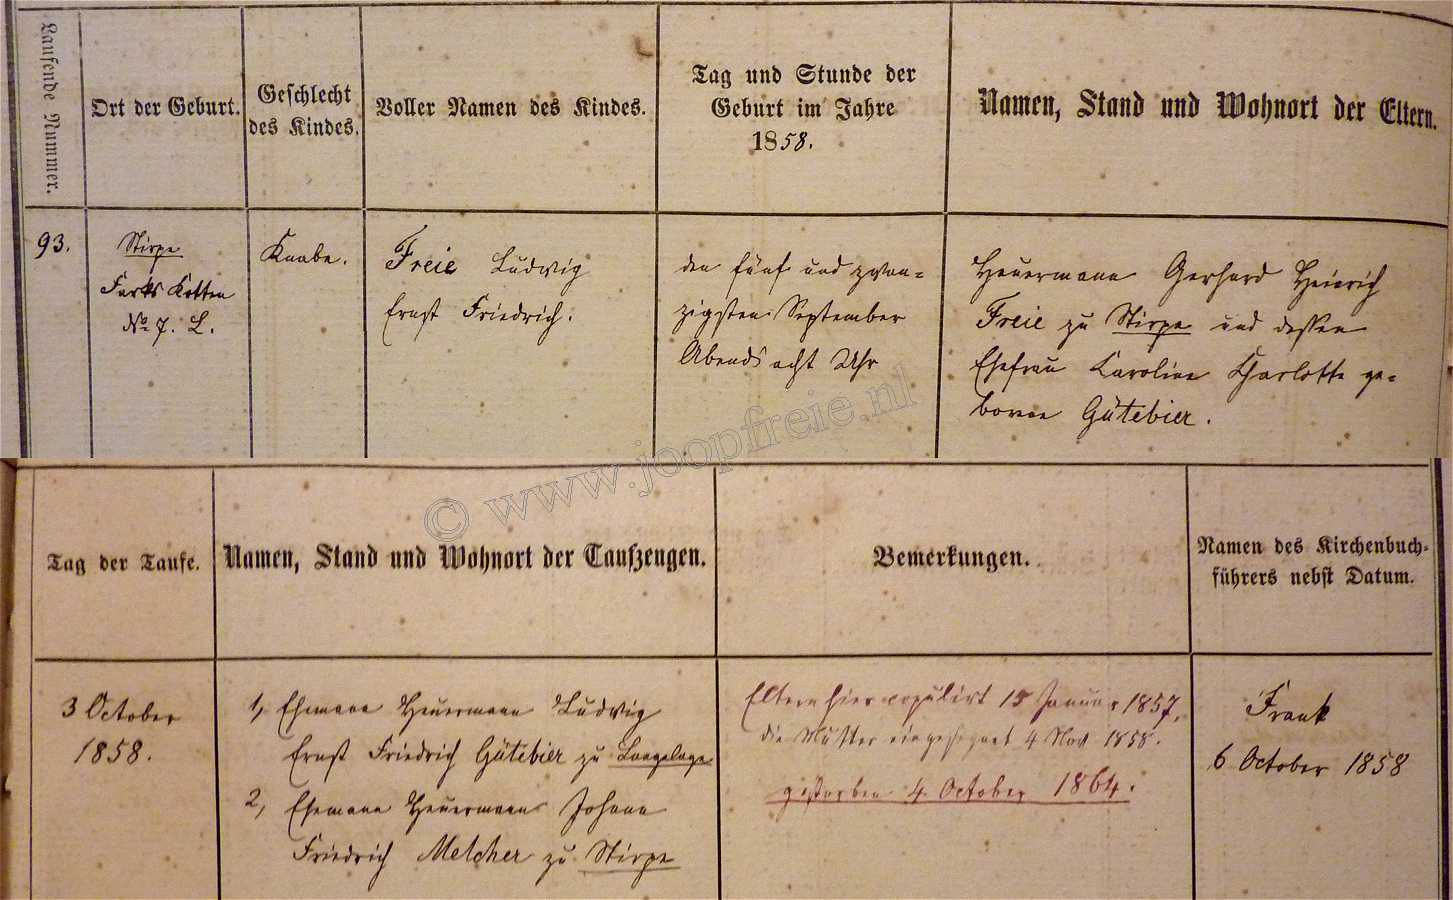 Laufende Nummer.
Ort der Geburt.
Geschlecht
des Kindes.
Voller Namen des Kindes.
Tag und Stunde der
Geburt im Jahre
1858.
Namen, Stand und Wohnort der Eltern.
93.
Stirpe
Farks Kotten
No 7. L.
Knabe.
Freie Ludwig
Ernst Friedrich.
den fünf und zwan-
zigsten September
Abends acht Uhr
Heuermann Gerhard Heinrich
Freie zu Stirpe und dessen
Ehefrau Karoline Charlotte ge-
borne Gütebier.
© www.joopfreie.nl
Tag der Taufe.
Namen, Stand und Wohnort der Taufzeugen.
Bemerkungen.
Namen des Kirchenbuch-
führers nebst Datum.
3 October
1858.
1, Ehemann Heuermann Ludwig
Ernst Friedrich Gütebier zu Langelage
2, Ehemann Heuermann Johann
Friedrich Melcher zu Stirpe
Eltern hier copulirt 15 Januar 1857,
die Mutter eingesegnet 4 Nov 1858.
gestorben 4 October 1864.
Frank
6 October 1858